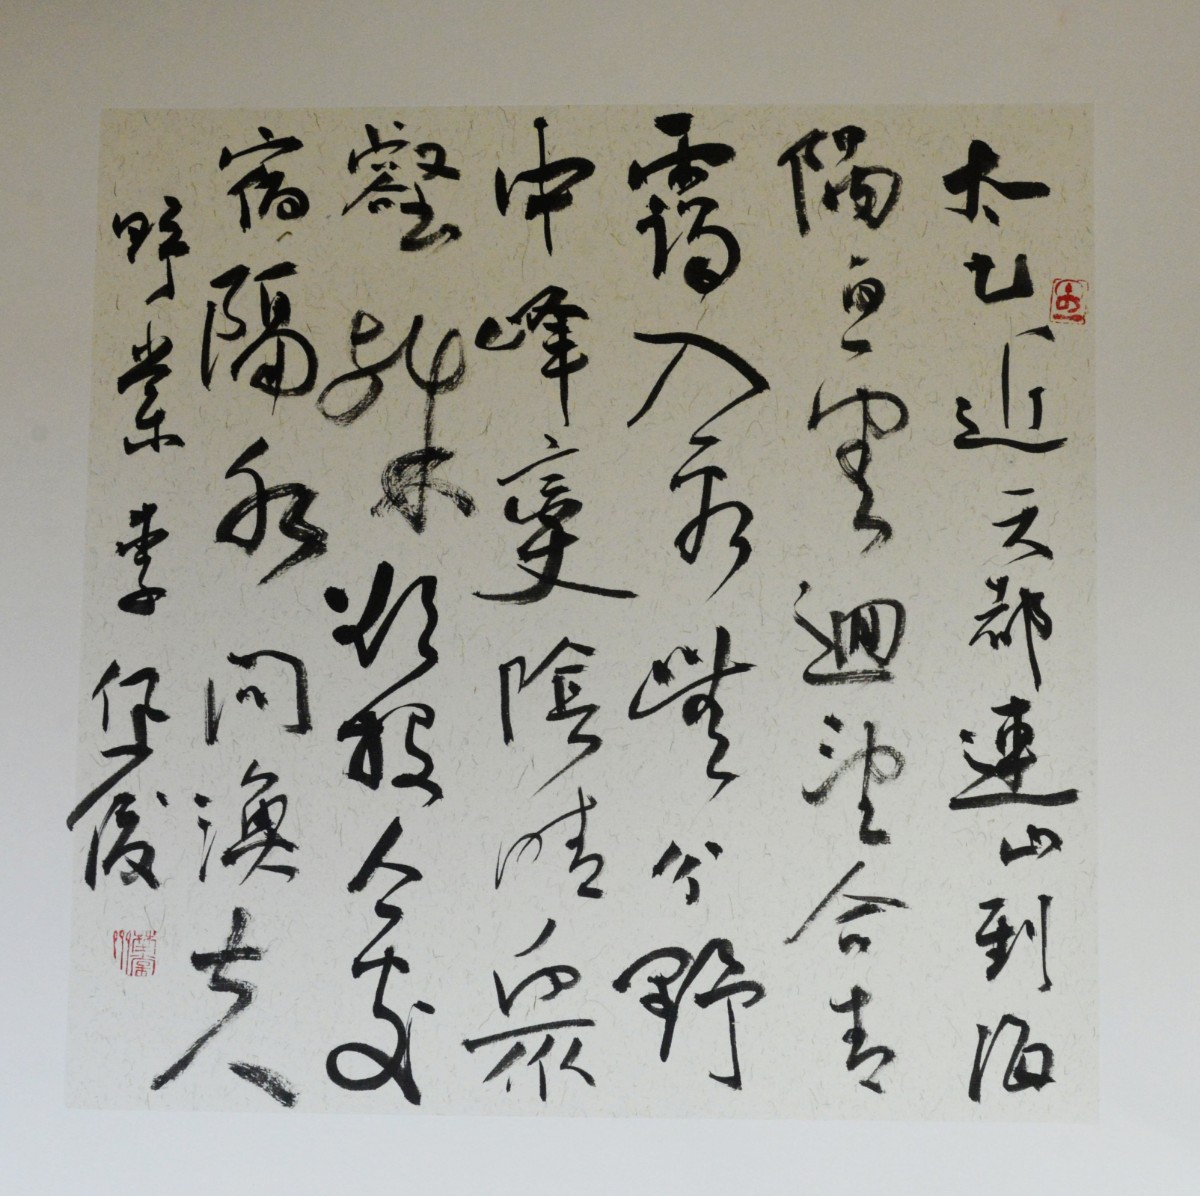 太乙近天都連山到海
隅白雲迴望合青
靄入看無分野
中峰變陰晴衆
壑殊欲投人處
宿隔水問漁夫
野 李